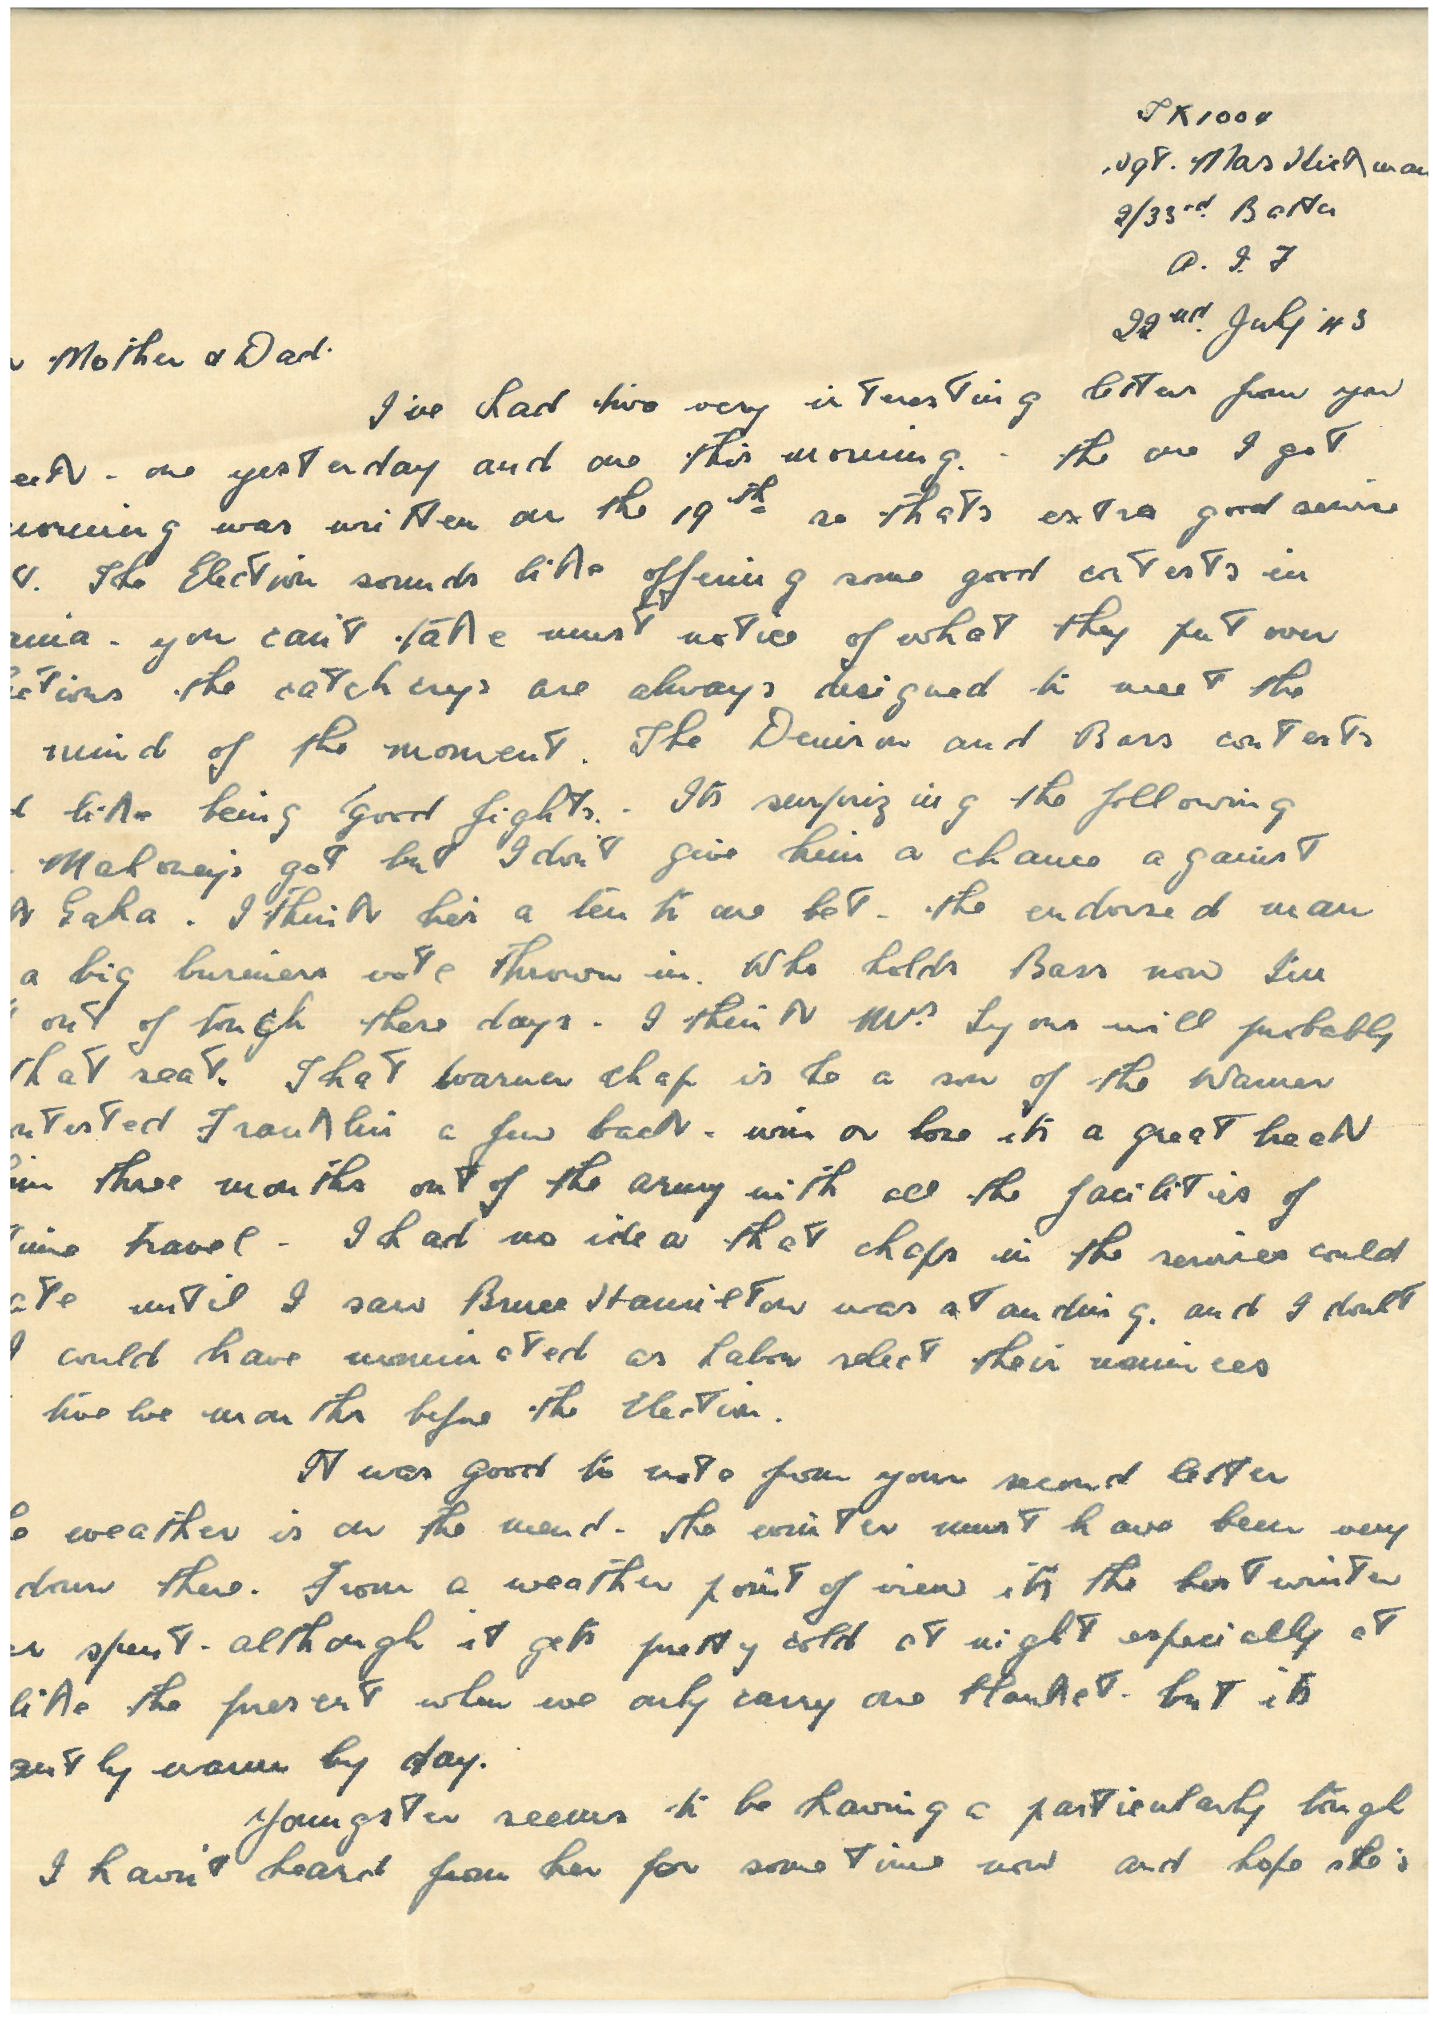 TX1004
Sgt. Max Hickman
2/33rd. Battn
A. I. F
22nd. July 43
Mother & Dad.
I've had two very interesting letters from you
- one yesterday and one this morning. - the one I got
morning was written on the 19th so thats extra good service
The Election sounds like offering some good contests in
ania - you can't take must notice of what they put over
ctions the catch crys are always designed to meet the
mind of the moment. The Denison and Bass contests
d like being good fights. - Its surprizing the following
Mahoney's got but I don't give him a chance against
k Gaha. I think he's a ten to one bet - the endorsed man
a big business vote thrown in. Who holds Bass now I'm
out of touch these days - I think Mrs Lyons will probably
that seat. That Warner chap is he a son of the Warner
ntested Franklin a few back - win or lose its a great break
him three months out of the army with all the facilities of
time travel - I had no idea that chaps in the services could
ate until I saw Bruce Hamilton was standing. and I doubt
I could have nominated as Labor select their nominees
twelve months before the Election.
It was good to note from your second letter
e weather is on the mend - the winter must have been very
down there. From a weather point of view its the best winter
er spent - although it gets pretty cold at night especially at
like the present when we only carry one blanket - but its
antly warm by day.
Youngster seems to be having a particularly tough
I havn't heard from her for some time now and hope she's